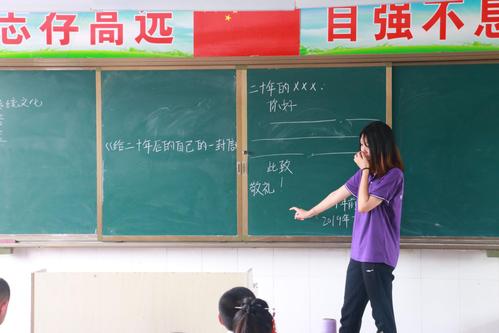 志存高远
自强不息
传统文化
《给二十年后的自己的一封信
二十年的XXX.
你好
此致
敬礼!
年前
2019年